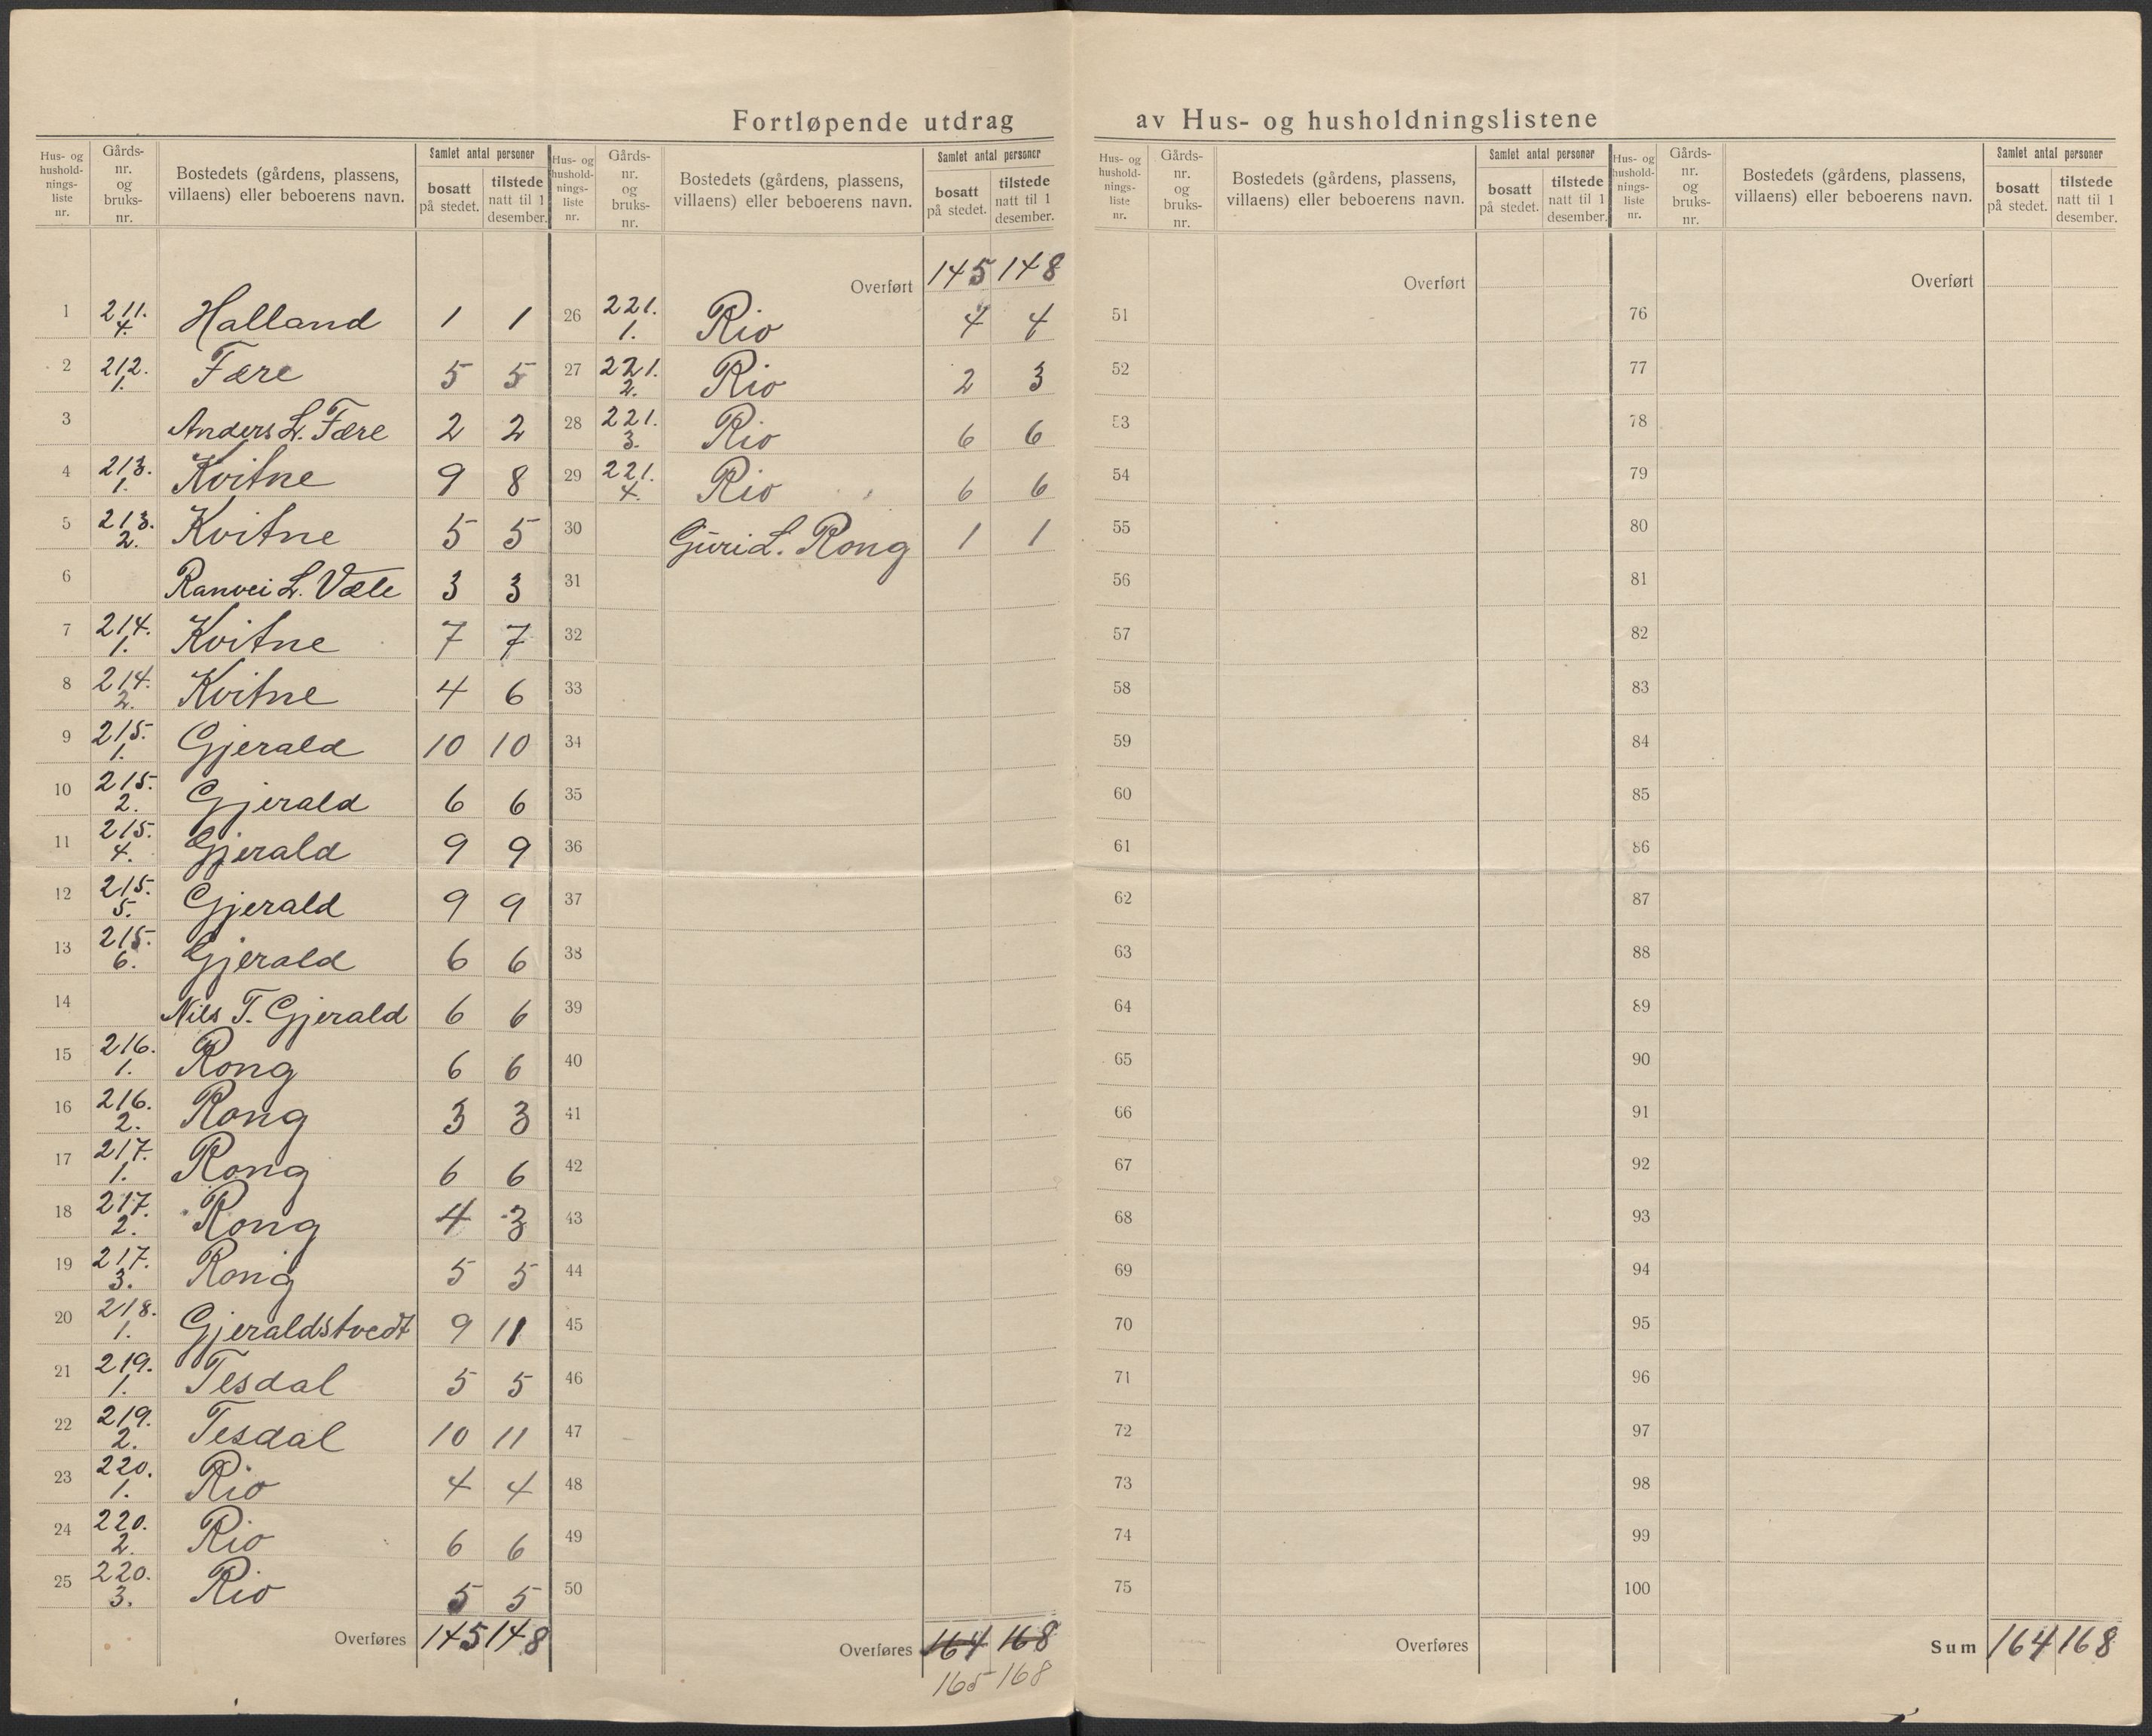 Fortløpende utdrag av Hus- og husholdningslistene
Hus- og hushold-nings-liste nr. | Gårds-nr. og bruks-nr. | Bostedets (gårdens, plassens, villaens) eller beboerens navn. | Samlet antal personer | bosatt på stedet. | tilstede natt til 1 desember.
1 211. 4. Halland 1 1
2 212. 1. Fære 5 5
3 Anders L. Fære 2 2
4 213. 1. Kvitne 9 8
5 213. 2. Kvitne 5 5
6 Ranvei L. Væle 3 3
7 214. 1. Kvitne 7 7
8 214. 2. Kvitne 4 6
9 215. 1. Gjerald 10 10
10 215. 2. Gjerald 6 6
11 215. 4. Gjerald 9 9
12 215. 5. Gjerald 9 9
13 215. 6. Gjerald 6 6
14 Nils T. Gjerald 6 6
15 216. 1. Rong 6 6
16 216. 2. Rong 3 3
17 217. 1. Rong 6 6
18 217. 2. Rong 4 3
19 217. 3. Rong 5 5
20 218. 1. Gjeraldstvedt 9 11
21 219. 1. Tesdal 5 5
22 219. 2. Tesdal 10 11
23 220. 1. Rio 4 4
24 220. 2. Rio 6 6
25 220. 3. Rio 5 5
Overføres 145 148
Hus- og hushold-nings-liste nr. | Gårds-nr. og bruks-nr. | Bostedets (gårdens, plassens, villaens) eller beboerens navn. | Samlet antal personer | bosatt på stedet. | tilstede natt til 1 desember.
Overført 145 148
26 221. 1. Rio 4 4
27 221. 2. Rio 2 3
28 221. 3. Rio 6 6
29 221. 4. Rio 6 6
30 Guri L. Rong 1 1
31
32
33
34
35
36
37
38
39
40
41
42
43
44
45
46
47
48
49
50
Overføres 164 168
165 168
Hus- og hushold-nings-liste nr. | Gårds-nr. og bruks-nr. | Bostedets (gårdens, plassens, villaens) eller beboerens navn. | Samlet antal personer | bosatt på stedet. | tilstede natt til 1 desember.
Overført
51
52
53
54
55
56
57
58
59
60
61
62
63
64
65
66
67
68
69
70
71
72
73
74
75
Overføres
Hus- og hushold-nings-liste nr. | Gårds-nr. og bruks-nr. | Bostedets (gårdens, plassens, villaens) eller beboerens navn. | Samlet antal personer | bosatt på stedet. | tilstede natt til 1 desember.
Overført
76
77
78
79
80
81
82
83
84
85
86
87
88
89
90
91
92
93
94
95
96
97
98
99
100
Sum 164 168